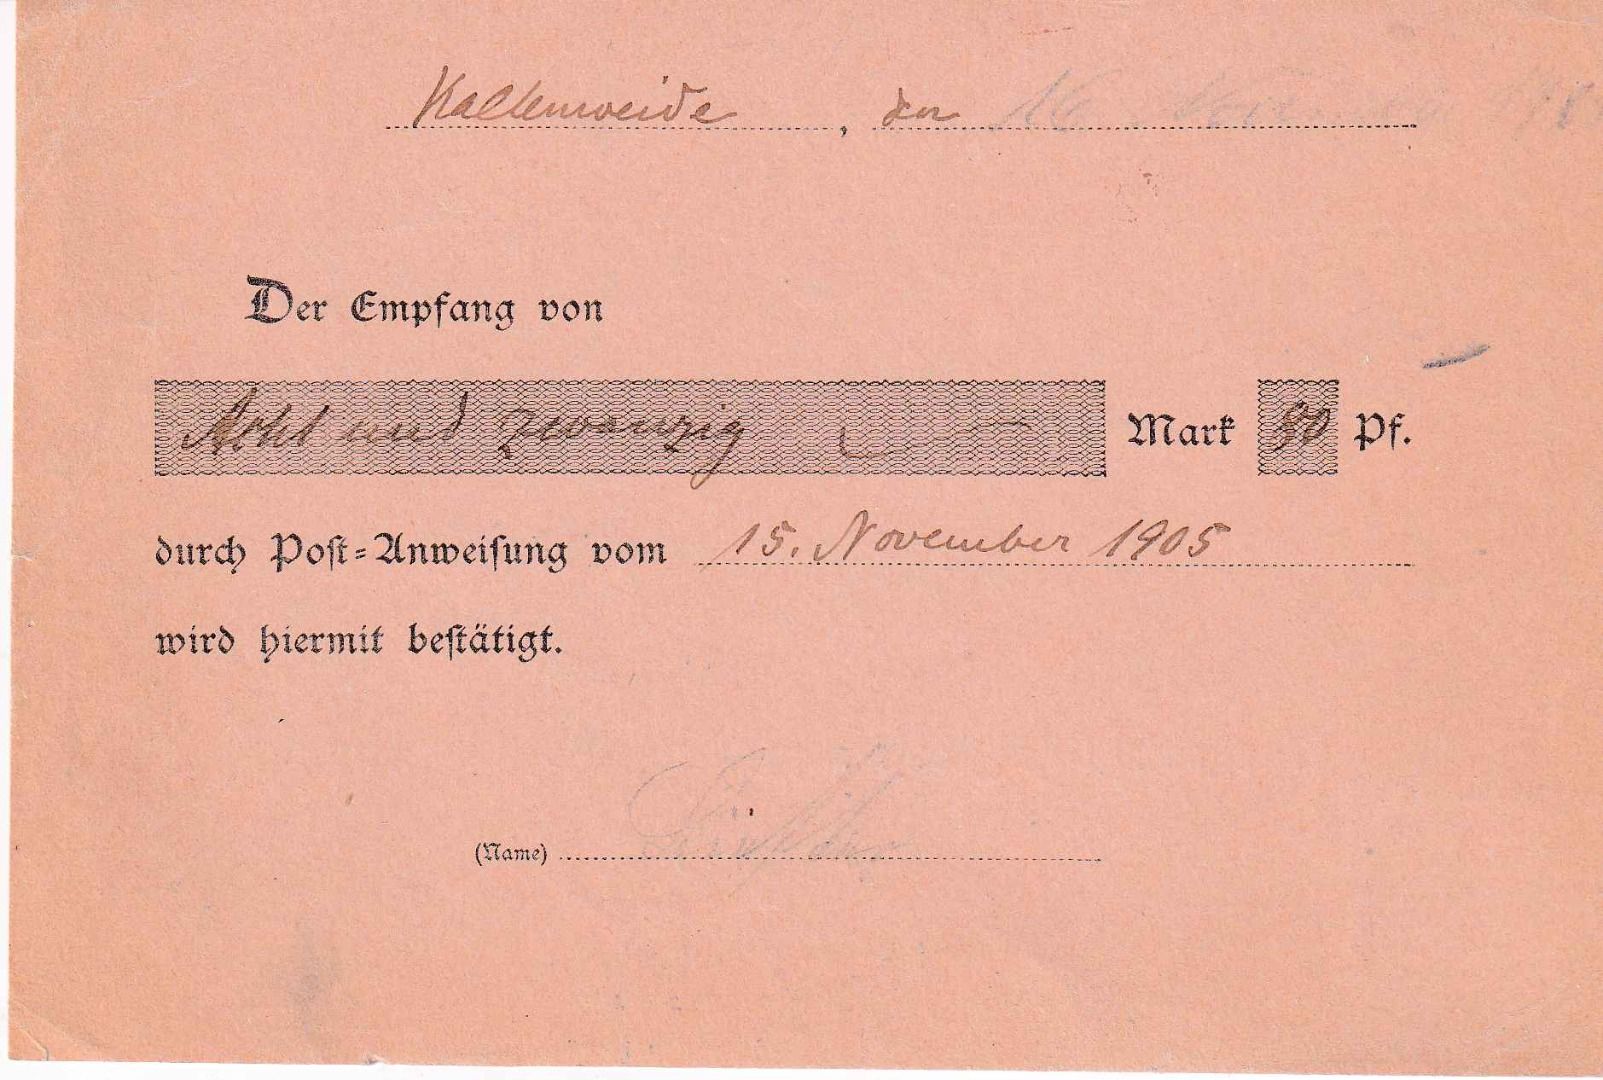 Kaltenweide, den 16
Der Empfang von
Acht und zwanzig Mark 80 Pf.
durch Post=Anweisung vom 15. November 1905
wird hiermit bestätigt.
(Name)